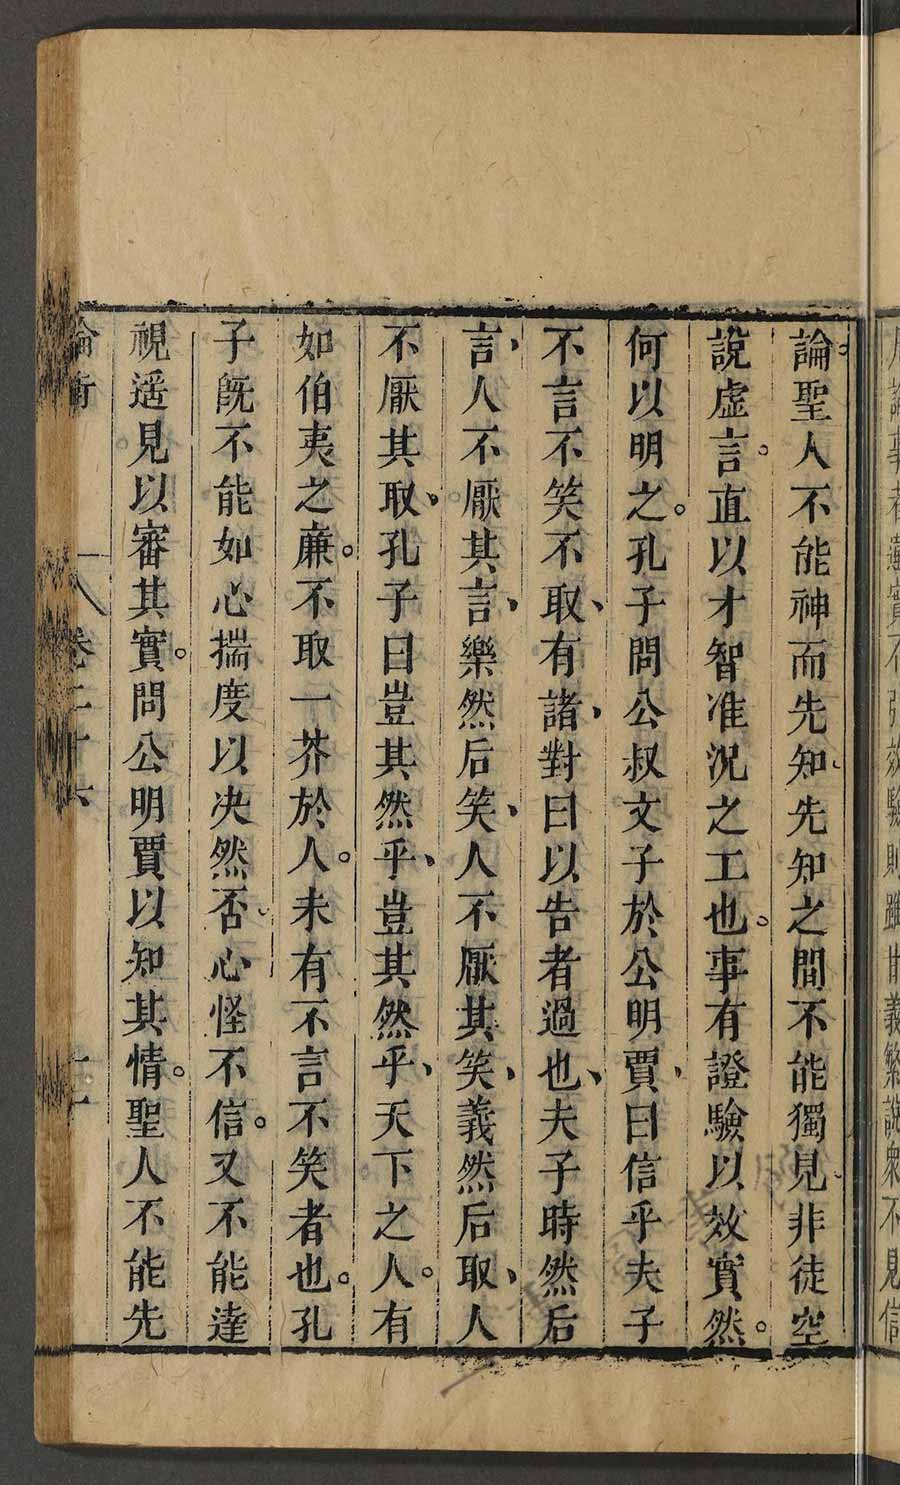 論聖人不能神而先知先知之間不能獨見非徒空
說虛言。直以才智准況之工也。事有證驗以效實然。
何以明之。孔子問公叔文子於公明賈、曰信乎夫子
不言不笑不取、有諸、對曰以告者過也、夫子時然后
言、人不厭其言、樂然后笑、人不厭其笑、義然后取、人
不厭其取、孔子曰豈其然乎、豈其然乎、天下之人。有
如伯夷之廉。不取一芥於人。未有不言不笑者也。孔
子旣不能如心揣度以决然否、心怪不信。又不能達
視遥見以審其實。問公明賈以知其情。聖人不能先
論衡 卷二十六